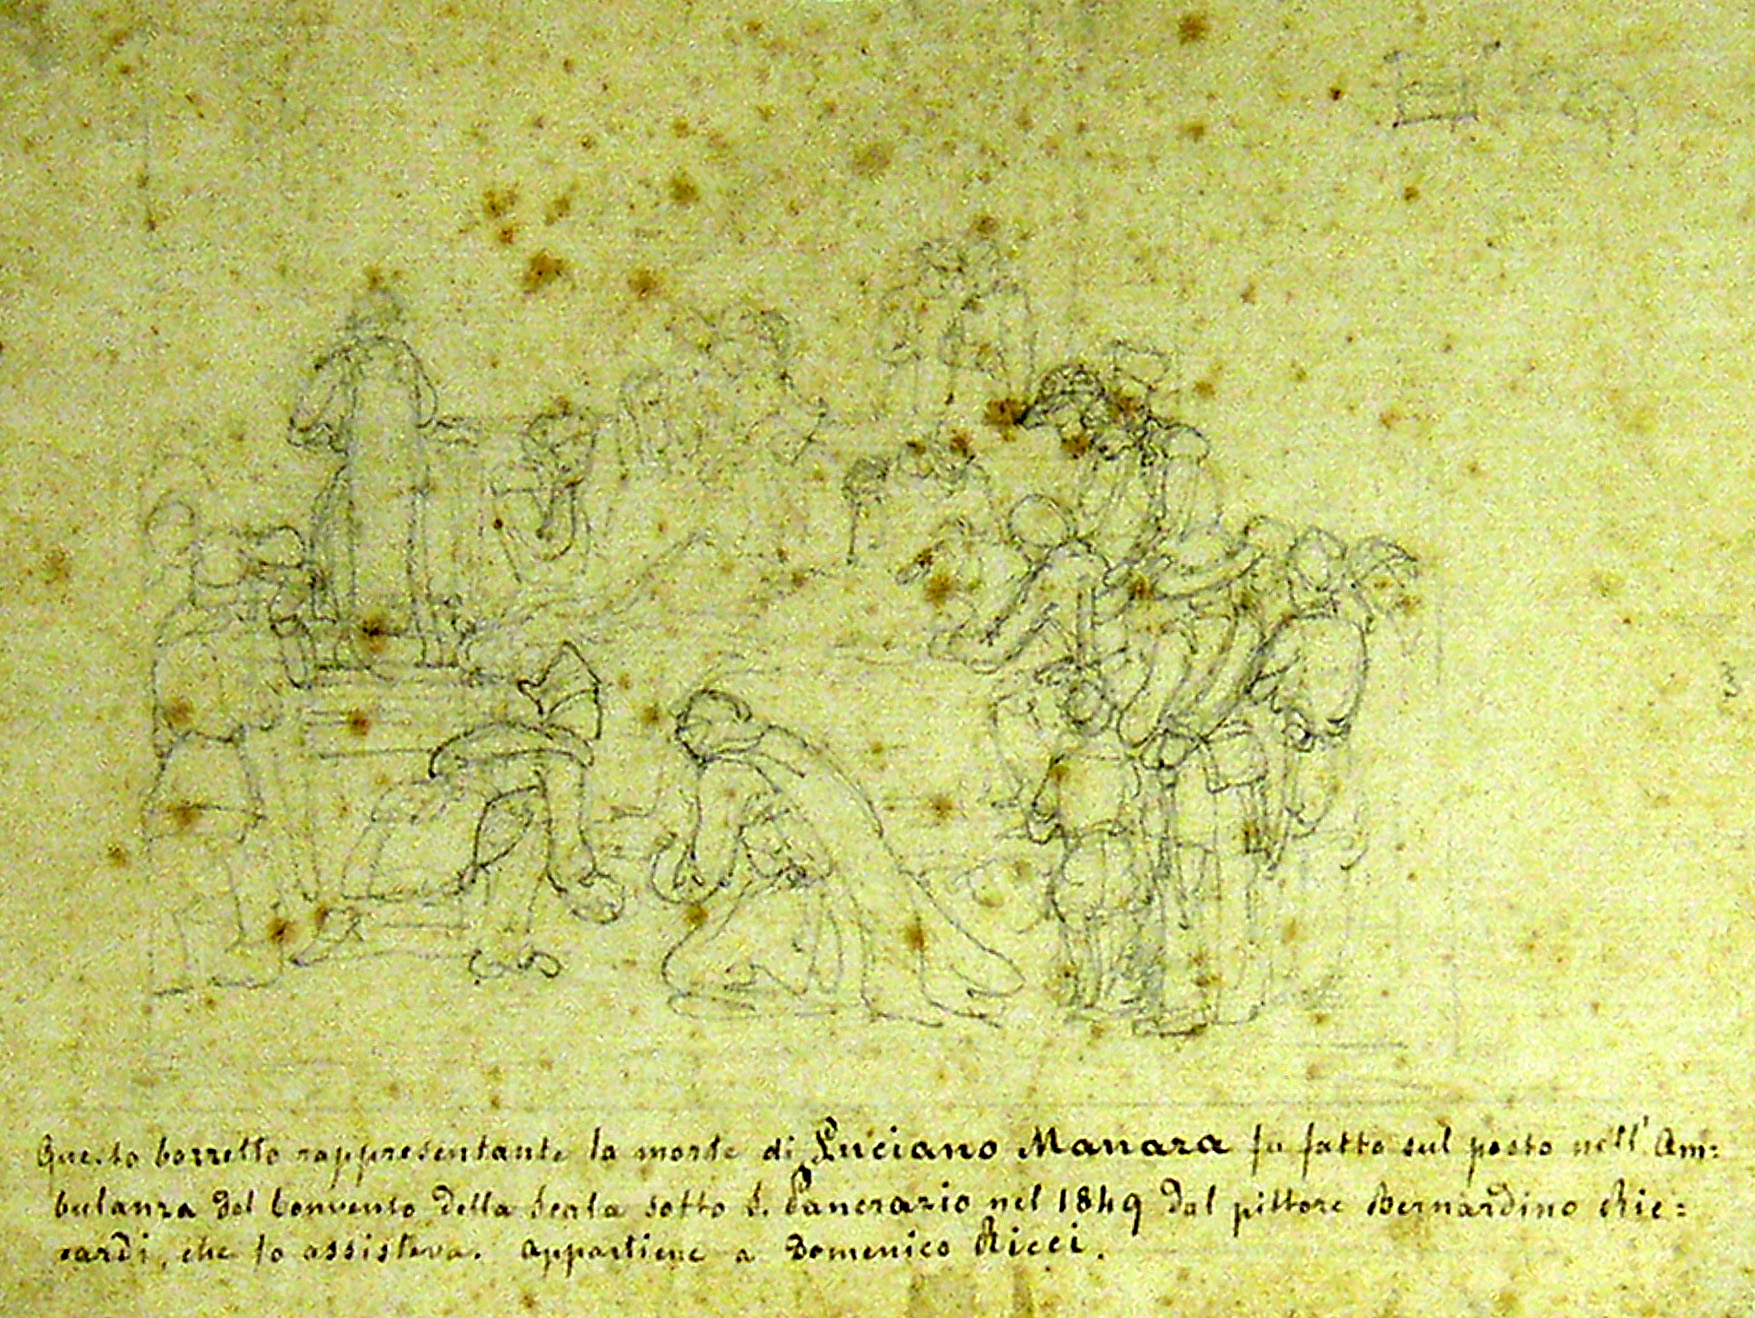 Questo bozzetto rappresentante la morte di Luciano Manara fu fatto sul posto nell' Am=
bulanza del Convento della Scala sotto S. Pancrazio nel 1849 dal pittore Bernardino Ric=
cardi, che lo assisteva. Appartiene a Domenico Ricci.